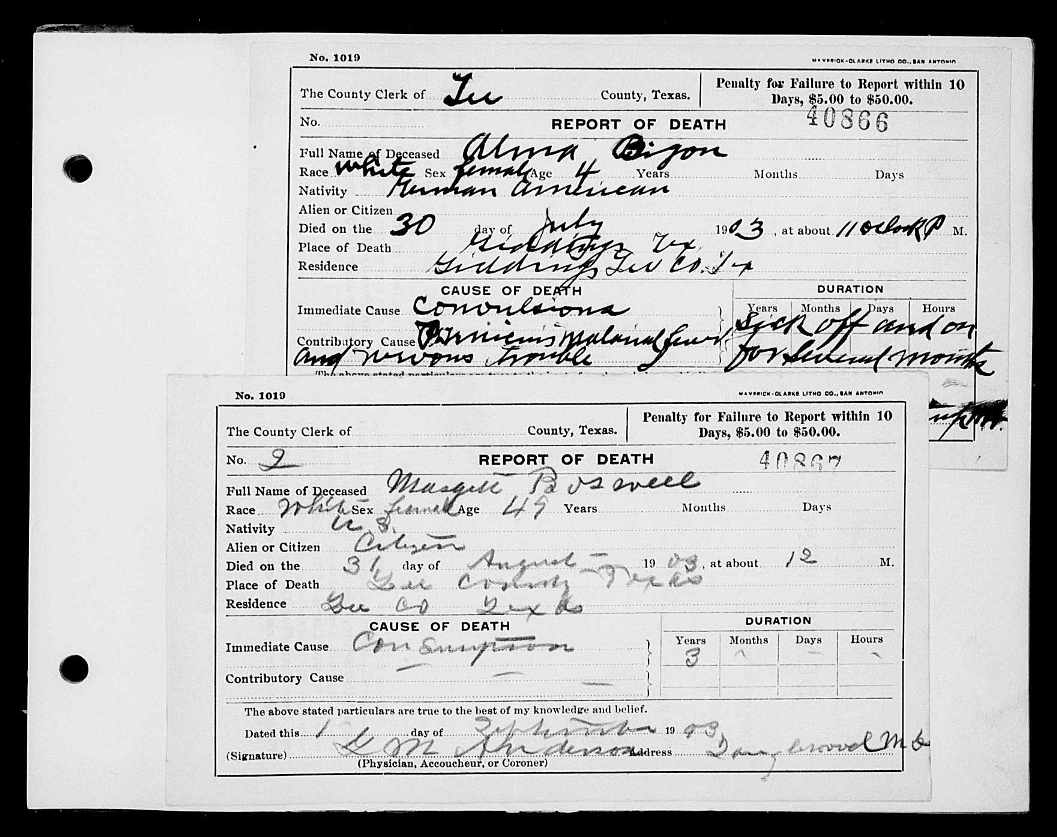 No. 1019 MAVERICK-CLARKE LITHO CO., SAN ANTONIO
The County Clerk of Lee County, Texas. Penalty for Failure to Report within 10
Days, $5.00 to $50.00.
No. REPORT OF DEATH 40866
Full Name of Deceased Alma Bigon
Race white Sex female Age 4 Years Months Days
Nativity German American
Alien or Citizen
Died on the 30 day of July 1903, at about 11 oclock P M.
Place of Death Giddings Tex
Residence Giddings Lee Co. Tex
CAUSE OF DEATH DURATION
Immediate Cause Convulsions Years Months Days Hours
Contributory Cause Pernicius Malarial fever Sick off and on
and nervous trouble for several months
The above stated particulars are
No. 1019 MAVERICK-CLARKE LITHO CO., SAN ANTONIO
The County Clerk of County, Texas. Penalty for Failure to Report within 10
Days, $5.00 to $50.00.
No. 2 REPORT OF DEATH 40867
Full Name of Deceased Margett Boswell
Race White Sex female Age 49 Years Months Days
Nativity U S.
Alien or Citizen Citizen
Died on the 31 day of August 1903, at about 12 M.
Place of Death Lee County Texas
Residence Lee Co Texas
CAUSE OF DEATH DURATION
Immediate Cause Consumption Years Months Days Hours
3
Contributory Cause
The above stated particulars are true to the best of my knowledge and belief.
Dated this 1 day of September 1903
(Signature) G M Anderson Address Tanglewood
(Physician, Accoucheur, or Coroner)